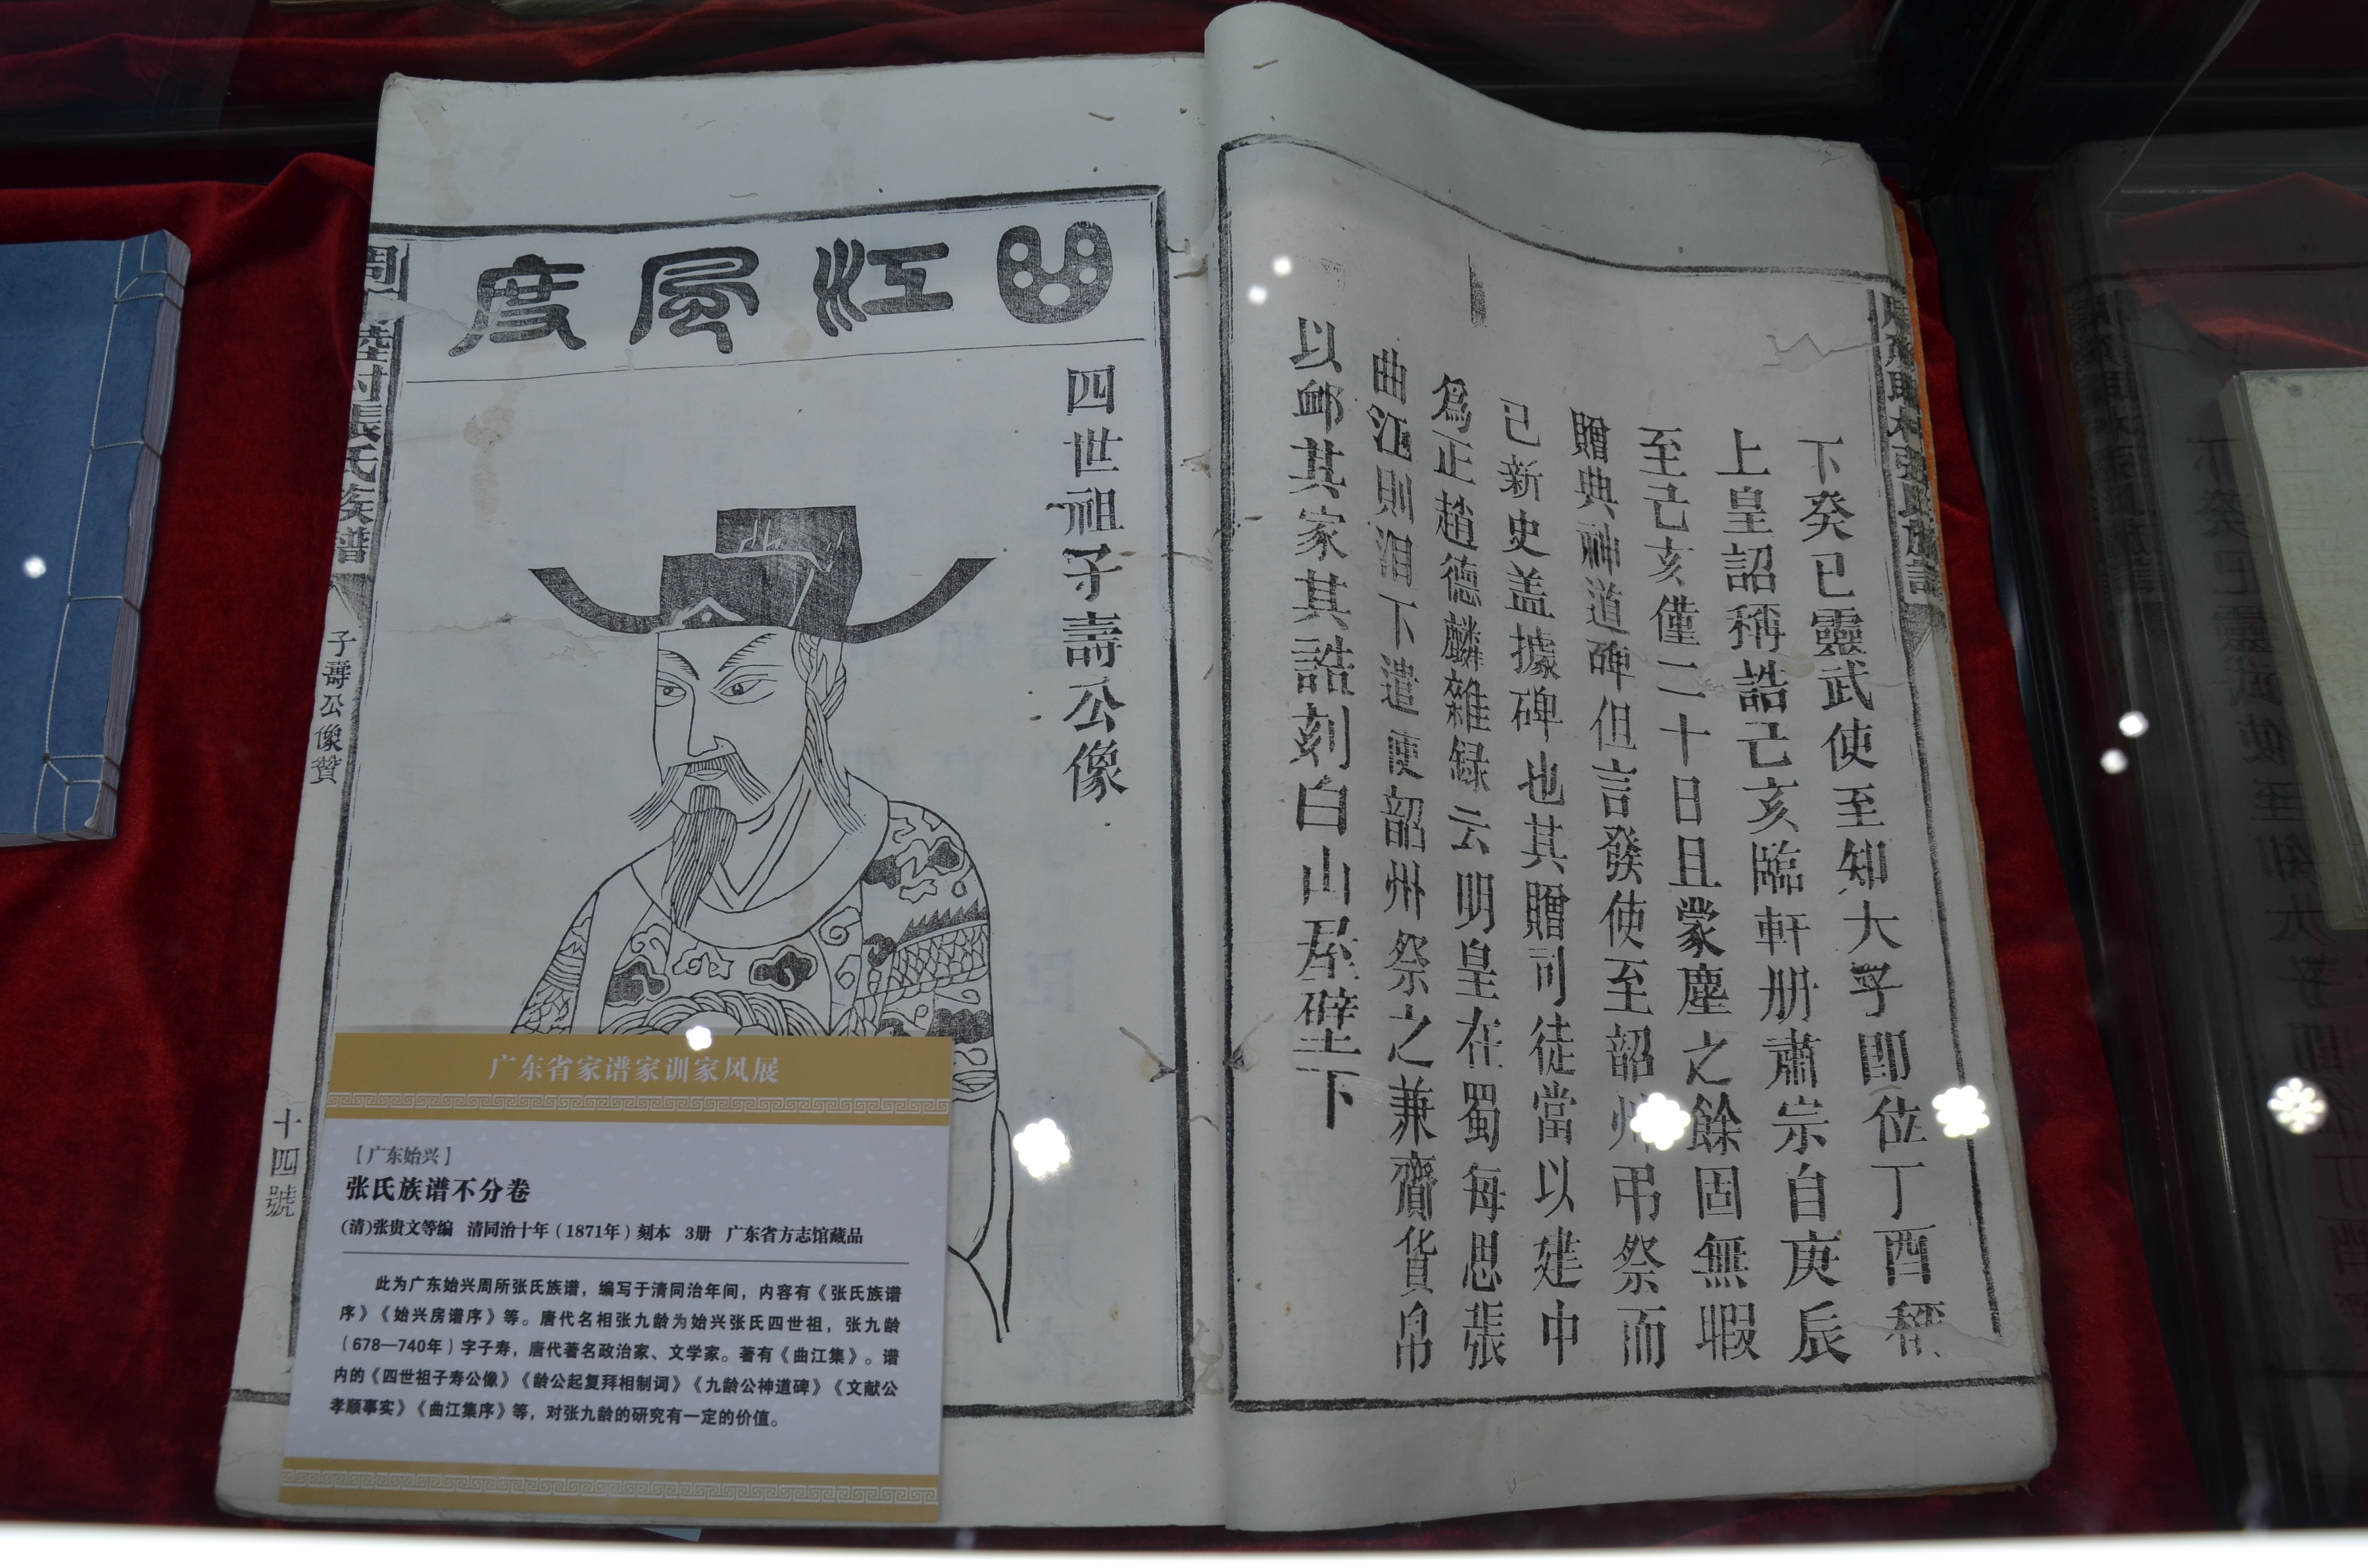 下癸巳靈武使至知大子即位丁酉稱
上皇詔稱誥己亥臨軒册肅宗自庚辰
至己亥僅二十日且蒙塵之餘固無暇
贈典神道碑但言發使至韶州弔祭而
已新史盖據碑也其贈司徒當以建中
爲正趙德麟雜録云明皇在蜀每思張
曲江則泪下遣使韶州祭之兼齎貨帛
以卹其家其誥刻白山屋壁下
曲江風度
四世祖子壽公像
張氏族譜
子壽公像贊
十四號
广东省家谱家训家风展
［广东始兴］
张氏族谱不分卷
(清)张贵文等编 清同治十年（1871年）刻本 3册 广东省方志馆藏品
此为广东始兴周所张氏族谱，编写于清同治年间，内容有《张氏族谱
序》《始兴房谱序》等。唐代名相张九龄为始兴张氏四世祖，张九龄
（678—740年）字子寿，唐代著名政治家、文学家。著有《曲江集》。谱
内的《四世祖子寿公像》《龄公起复拜相制词》《九龄公神道碑》《文献公
孝顺事实》《曲江集序》等，对张九龄的研究有一定的价值。